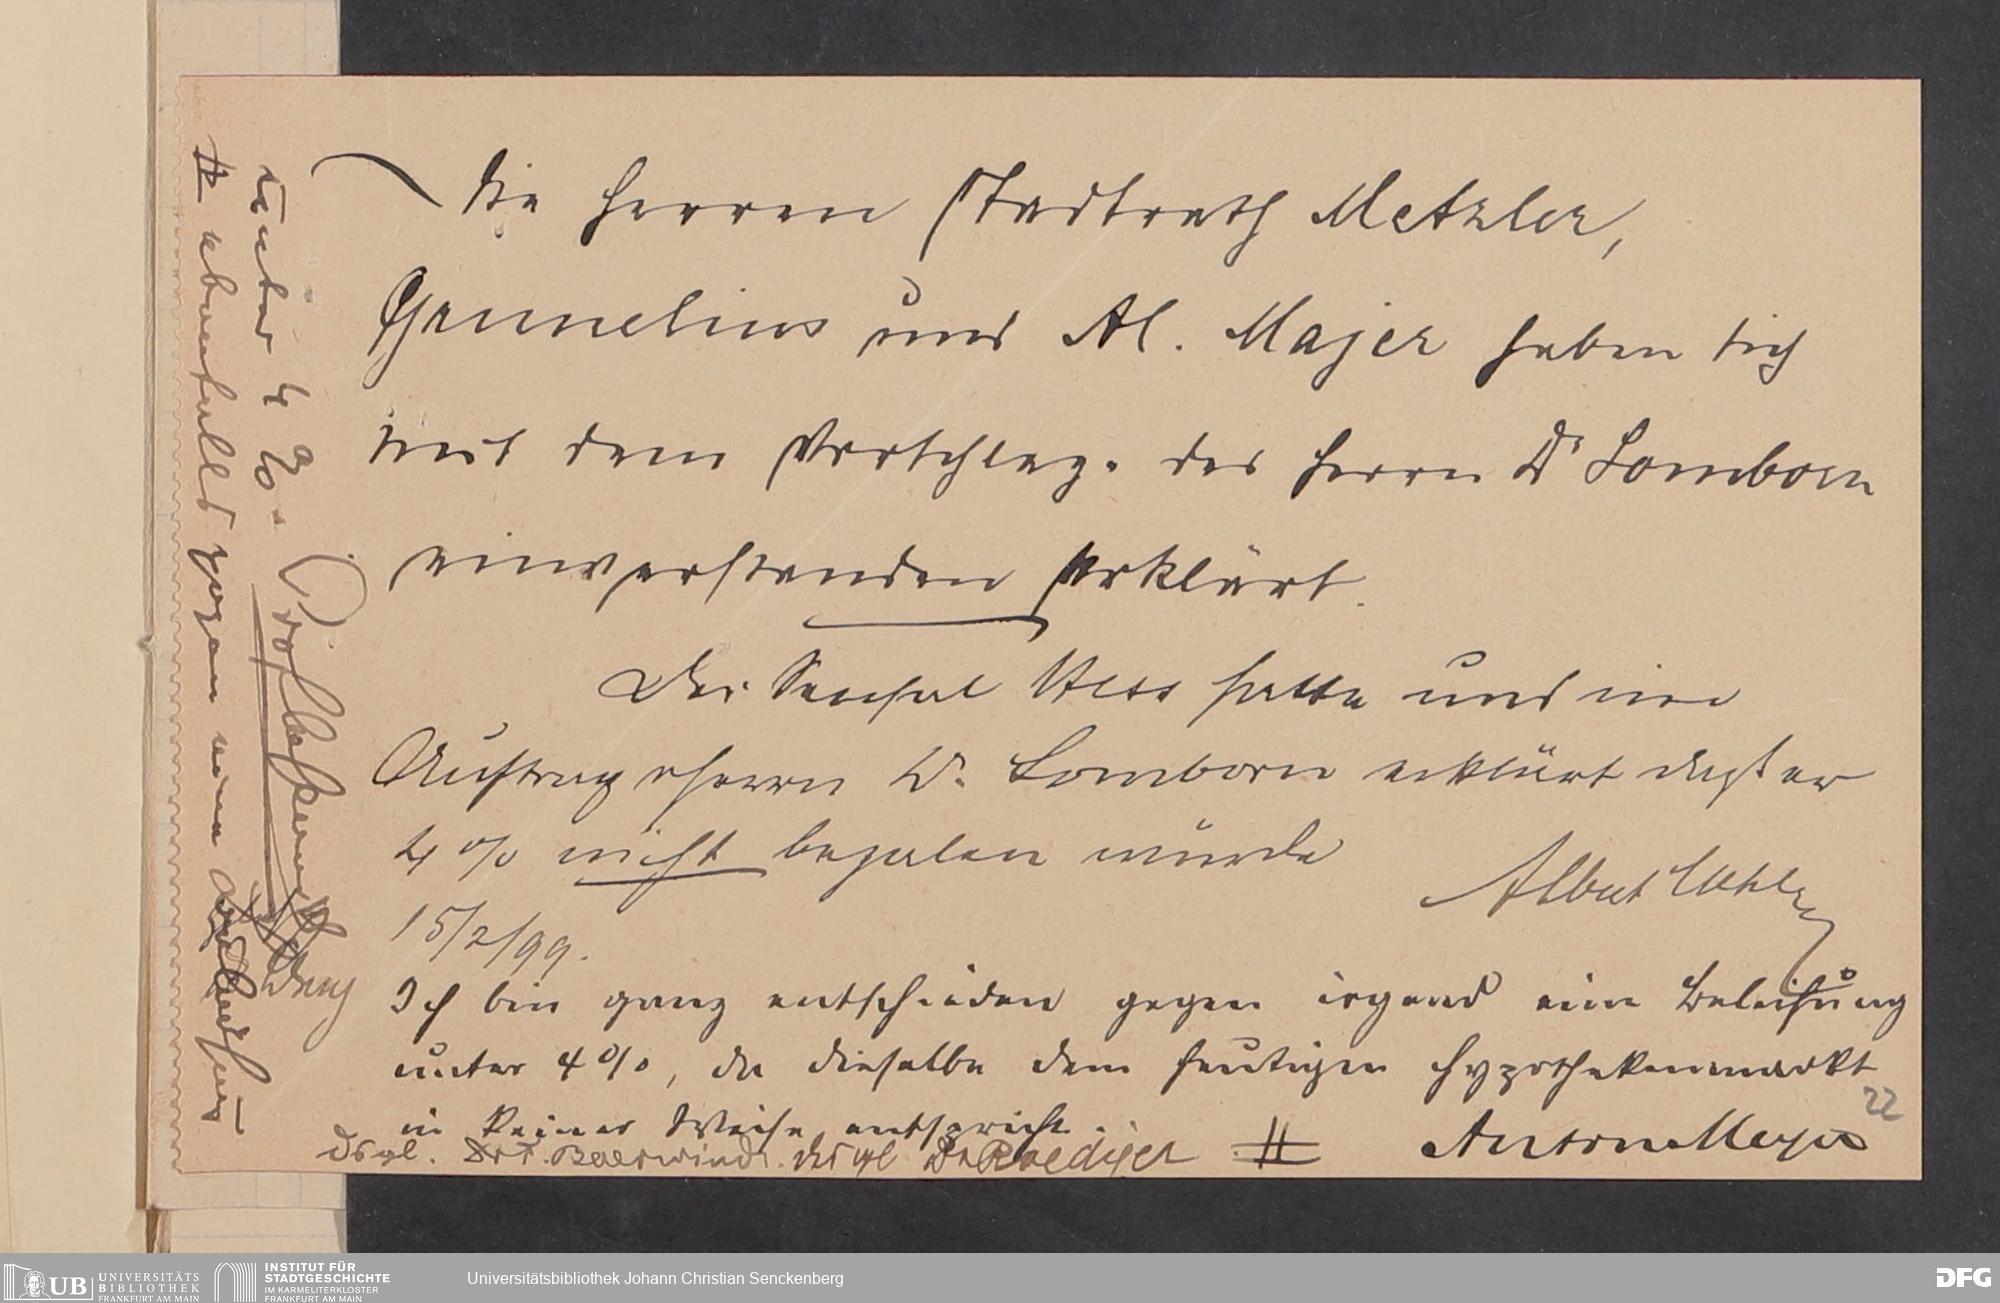 Die Herren Stadtrath Metzler,
Grunelius und Al. Majer haben sich
mit dem Vorschlag des Herrn Dr Lomborn
einverstanden erklärt.
Der Sensal Hess hatte uns im
Auftrag Herrn Dr. Lomborn erklärt daß er
4 % nicht bezalen würde
15/2/99.
Albert
Ich bin ganz entschieden gegen irgend eine Beleihung
unter 4 %, da dieselbe dem heutigen Hypothekenmarkt
in keiner Weise entspricht.
Anton Meyer
dsgl. Baerwind. dsgl Dr Roediger #
# ebenfalls gegen eine Beleihung
unter 4 %.
22
UB UNIVERSITÄTS
BIBLIOTHEK
FRANKFURT AM MAIN
INSTITUT FÜR
STADTGESCHICHTE
IM KARMELITERKLOSTER
FRANKFURT AM MAIN
Universitätsbibliothek Johann Christian Senckenberg
DFG